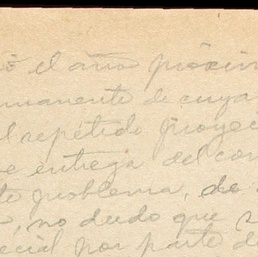 ó el año próxim
rmanente de cuya
l repetido proyec
e entrega del con
te problema, de
, no dudo que
ecial por parte de